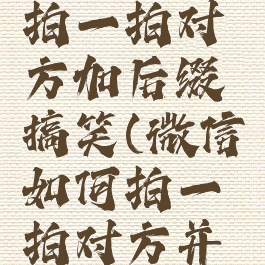 拍一拍对
方加后缀
搞笑(微信
如何拍一
拍对方并